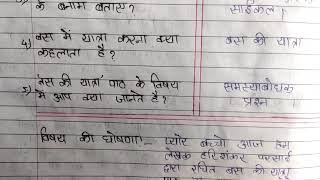 के बनाम बताए?
साईकल।
4) बस में यात्रा करना क्या
कहलाता है?
बस की यात्रा
5) 'बस की यात्रा' पाठ के विषय
में आप क्या जानते है?
समस्याबोधक
प्रश्न
विषय की घोषणा:- प्यारे बच्चो आज हम
लेखक हरिशंकर परसाई
द्वारा रचित बस की यात्रा